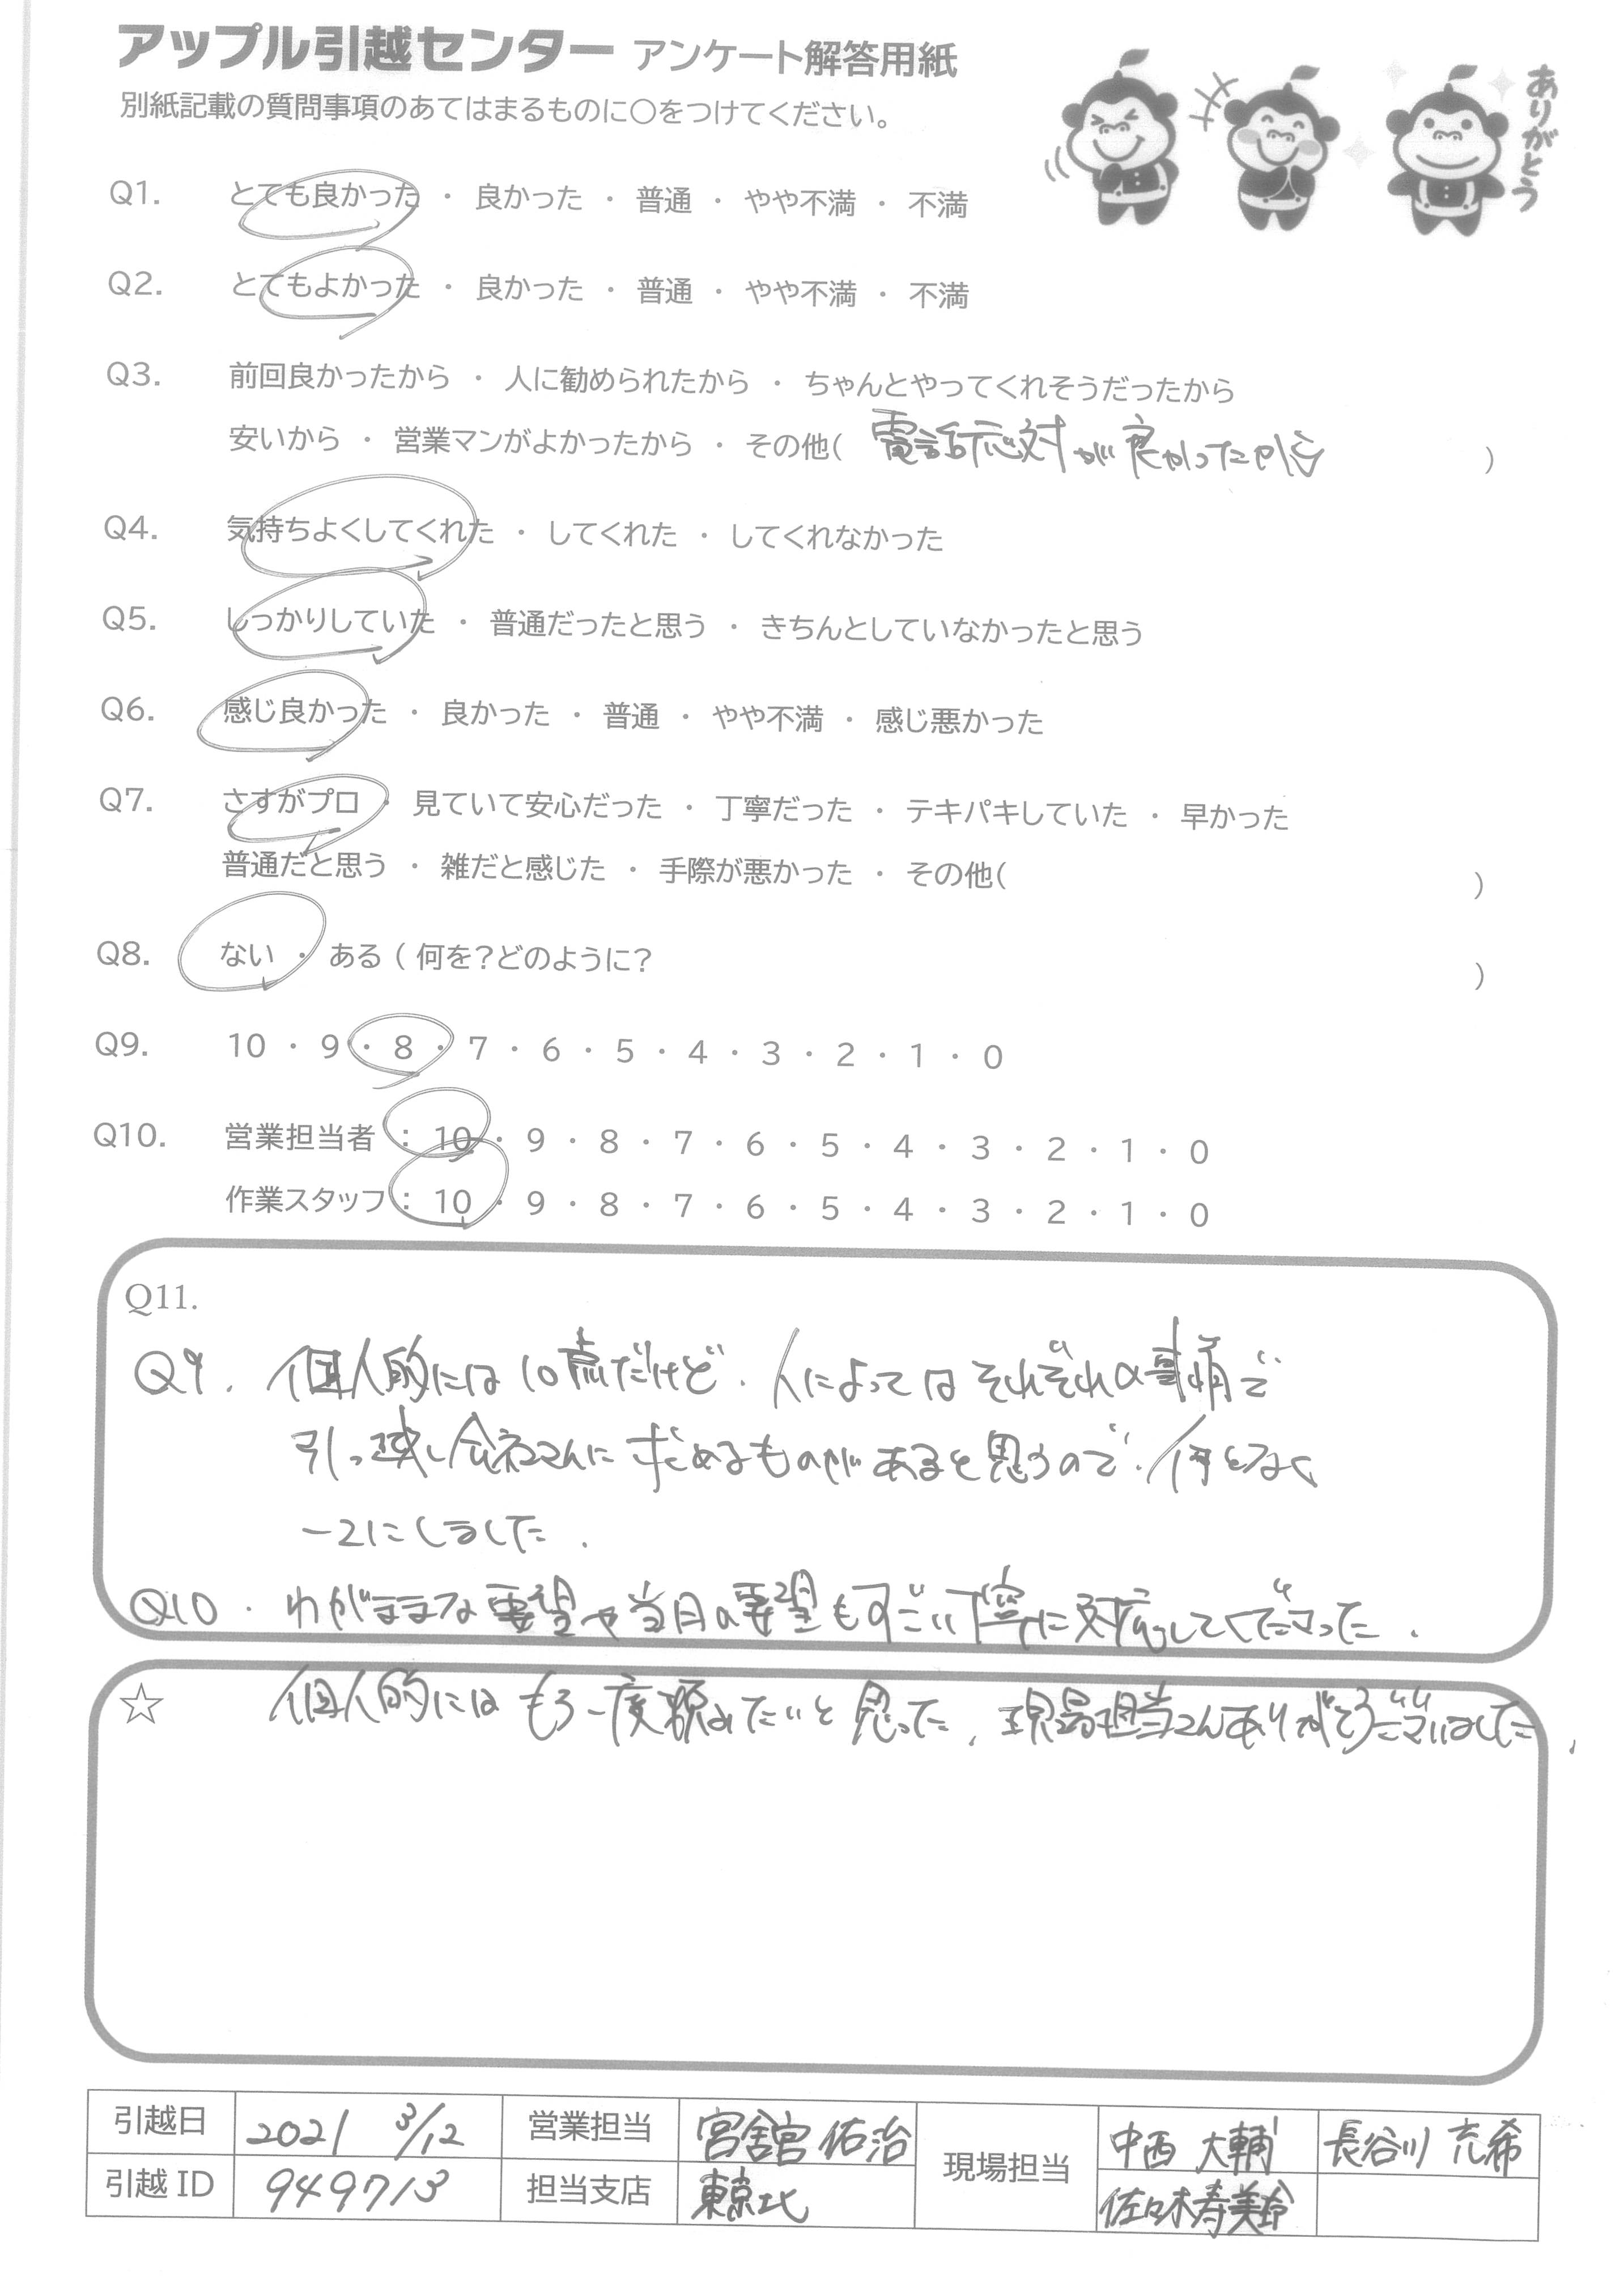 アップル引越センター アンケート解答用紙
別紙記載の質問事項のあてはまるものに○をつけてください。
ありがとう
Q1. とても良かった ・ 良かった ・ 普通 ・ やや不満 ・ 不満
Q2. とてもよかった ・ 良かった ・ 普通 ・ やや不満 ・ 不満
Q3. 前回良かったから ・ 人に勧められたから ・ ちゃんとやってくれそうだったから
安いから ・ 営業マンがよかったから ・ その他( 電話応対が良かったから )
Q4. 気持ちよくしてくれた ・ してくれた ・ してくれなかった
Q5. しっかりしていた ・ 普通だったと思う ・ きちんとしていなかったと思う
Q6. 感じ良かった ・ 良かった ・ 普通 ・ やや不満 ・ 感じ悪かった
Q7. さすがプロ ・ 見ていて安心だった ・ 丁寧だった ・ テキパキしていた ・ 早かった
普通だと思う ・ 雑だと感じた ・ 手際が悪かった ・ その他( )
Q8. ない ・ ある ( 何を？どのように？ )
Q9. 10 ・ 9 ・ 8 ・ 7 ・ 6 ・ 5 ・ 4 ・ 3 ・ 2 ・ 1 ・ 0
Q10. 営業担当者 : 10 ・ 9 ・ 8 ・ 7 ・ 6 ・ 5 ・ 4 ・ 3 ・ 2 ・ 1 ・ 0
作業スタッフ : 10 ・ 9 ・ 8 ・ 7 ・ 6 ・ 5 ・ 4 ・ 3 ・ 2 ・ 1 ・ 0
Q11.
Q9. 個人的には10点だけど、人によってはそれぞれの事情で
引っ越し会社さんに求めるものがあると思うので、何となく
-2にしました.
Q10. わがままな要望や当日の要望もすごい丁寧に対応してくださった.
☆ 個人的にはもう一度頼みたいと思った. 現場担当さんありがとうございました.
引越日 2021 3/12 営業担当 宮舘 佑治 現場担当 中西 大輔 長谷川 充希
引越 ID 949713 担当支店 東京北 佐々木寿美玲